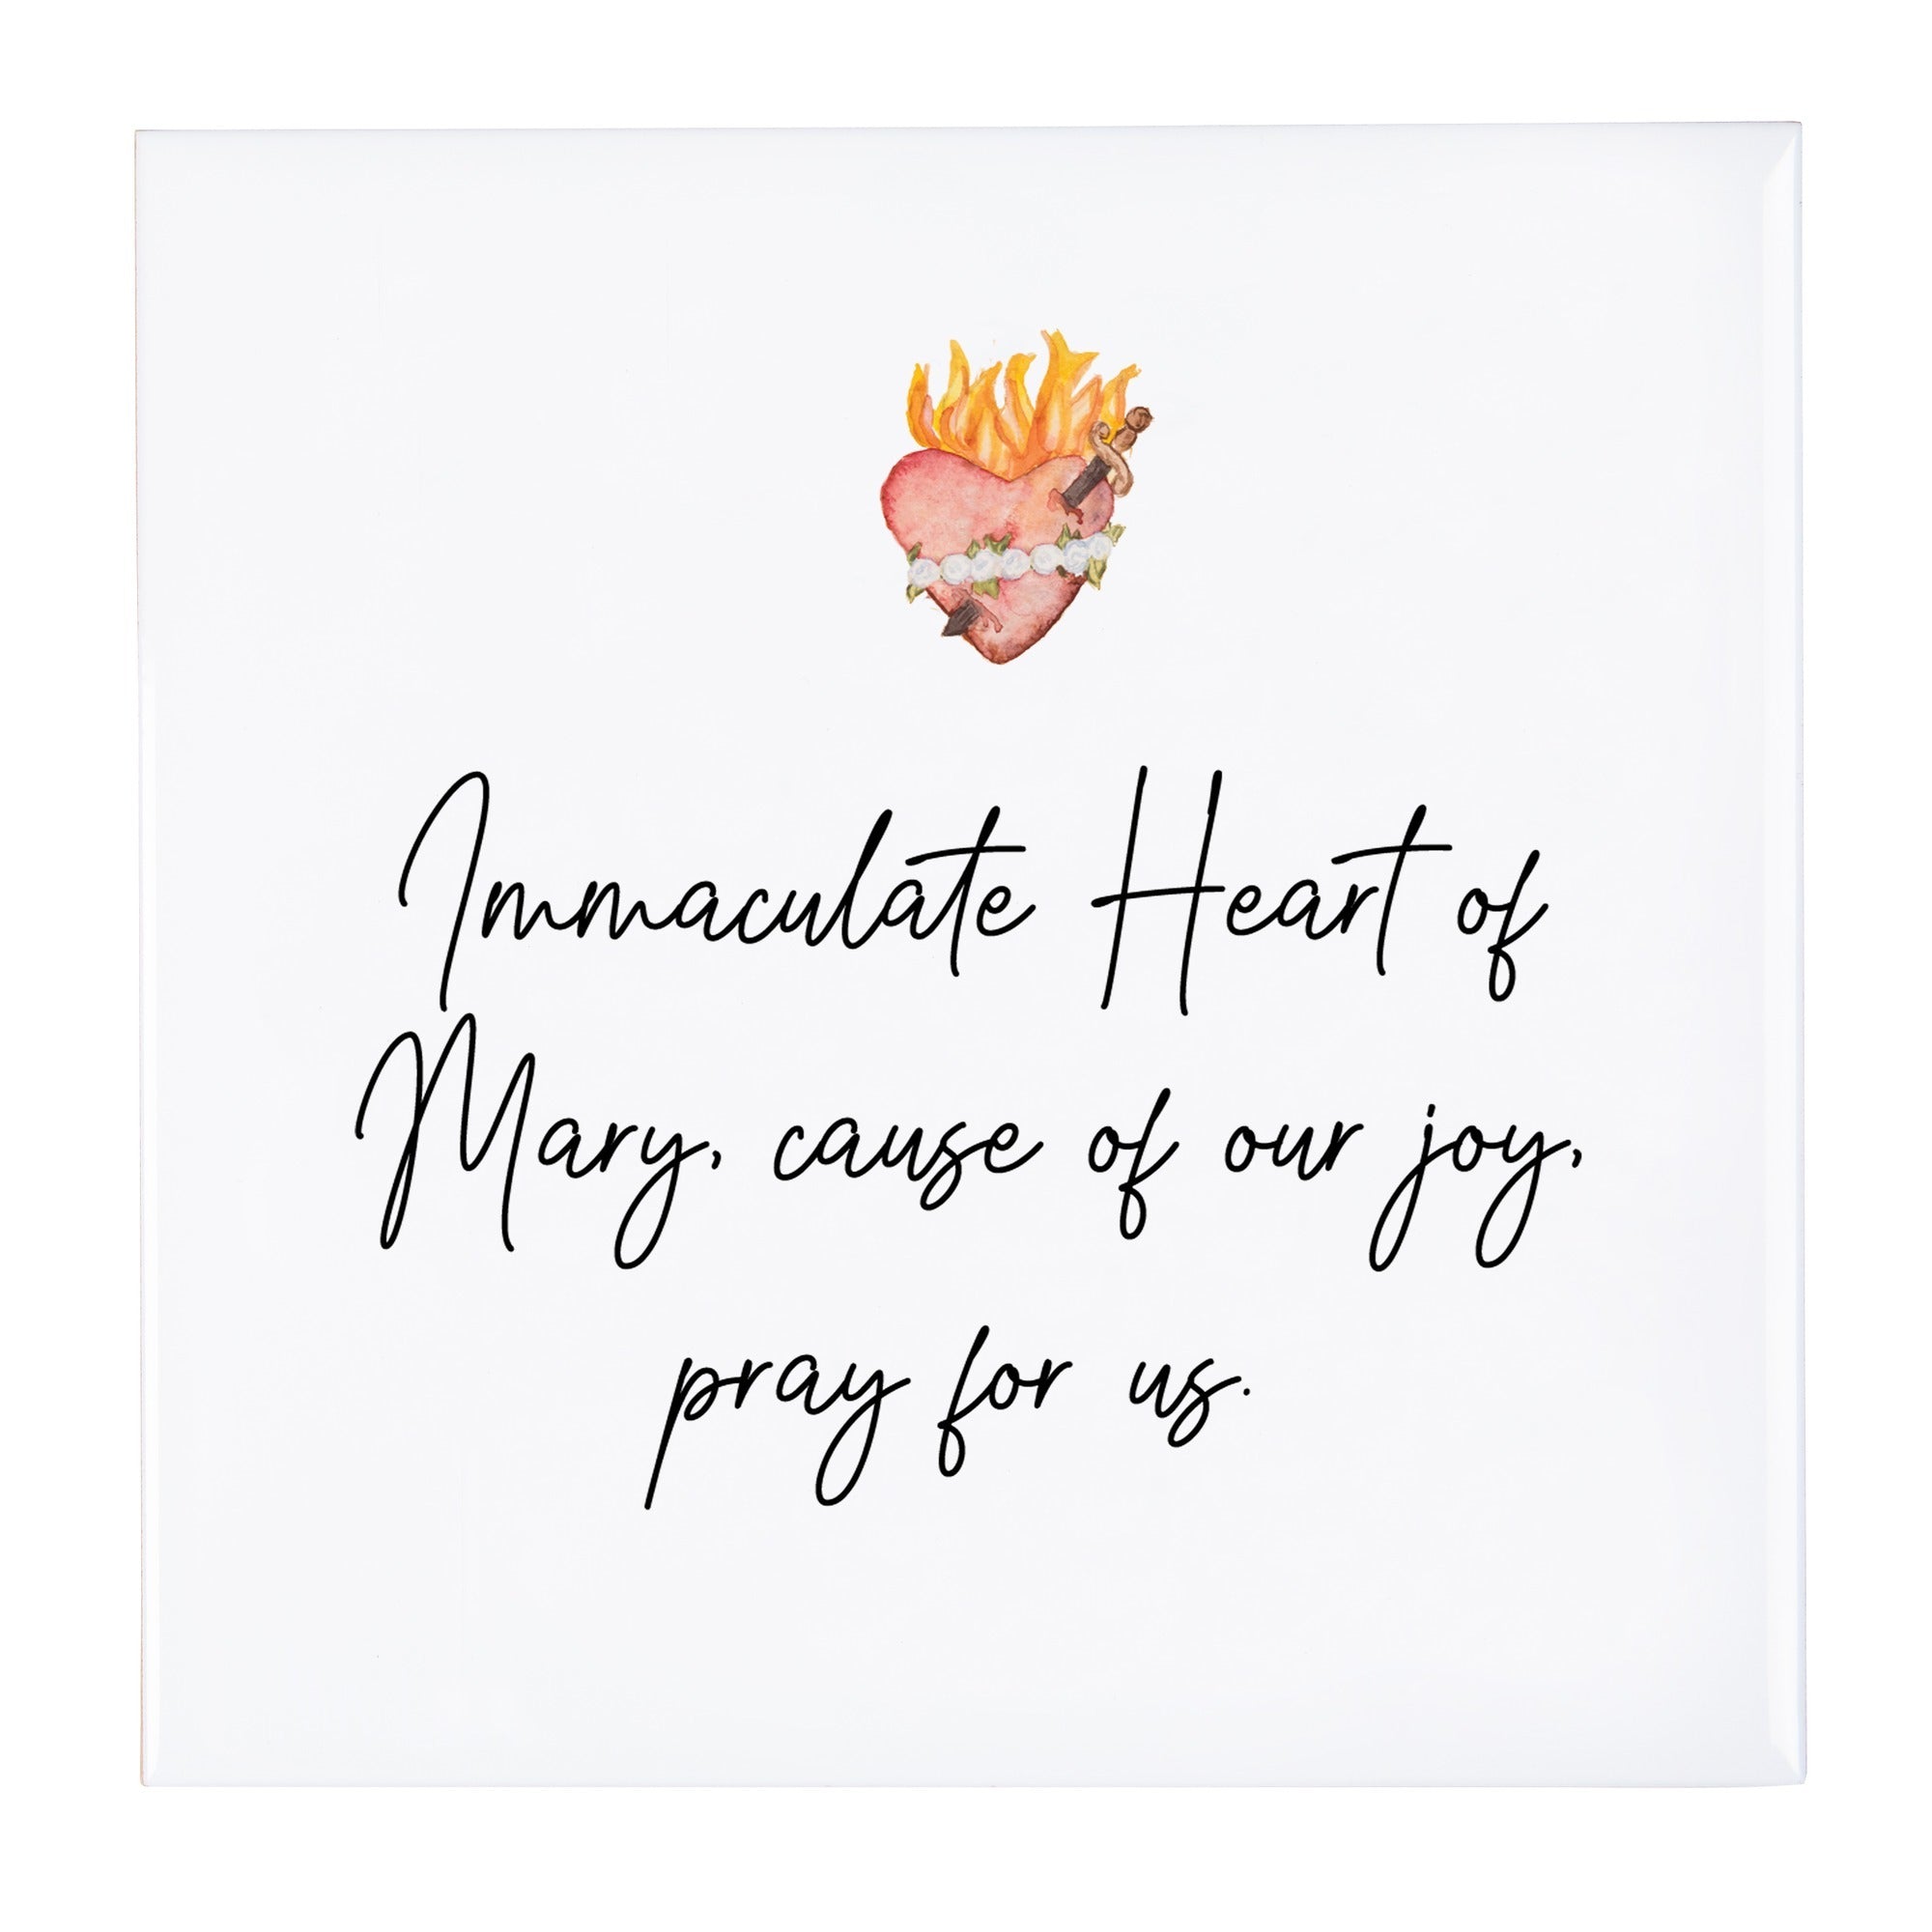 Immaculate Heart of
Mary, cause of our joy,
pray for us.